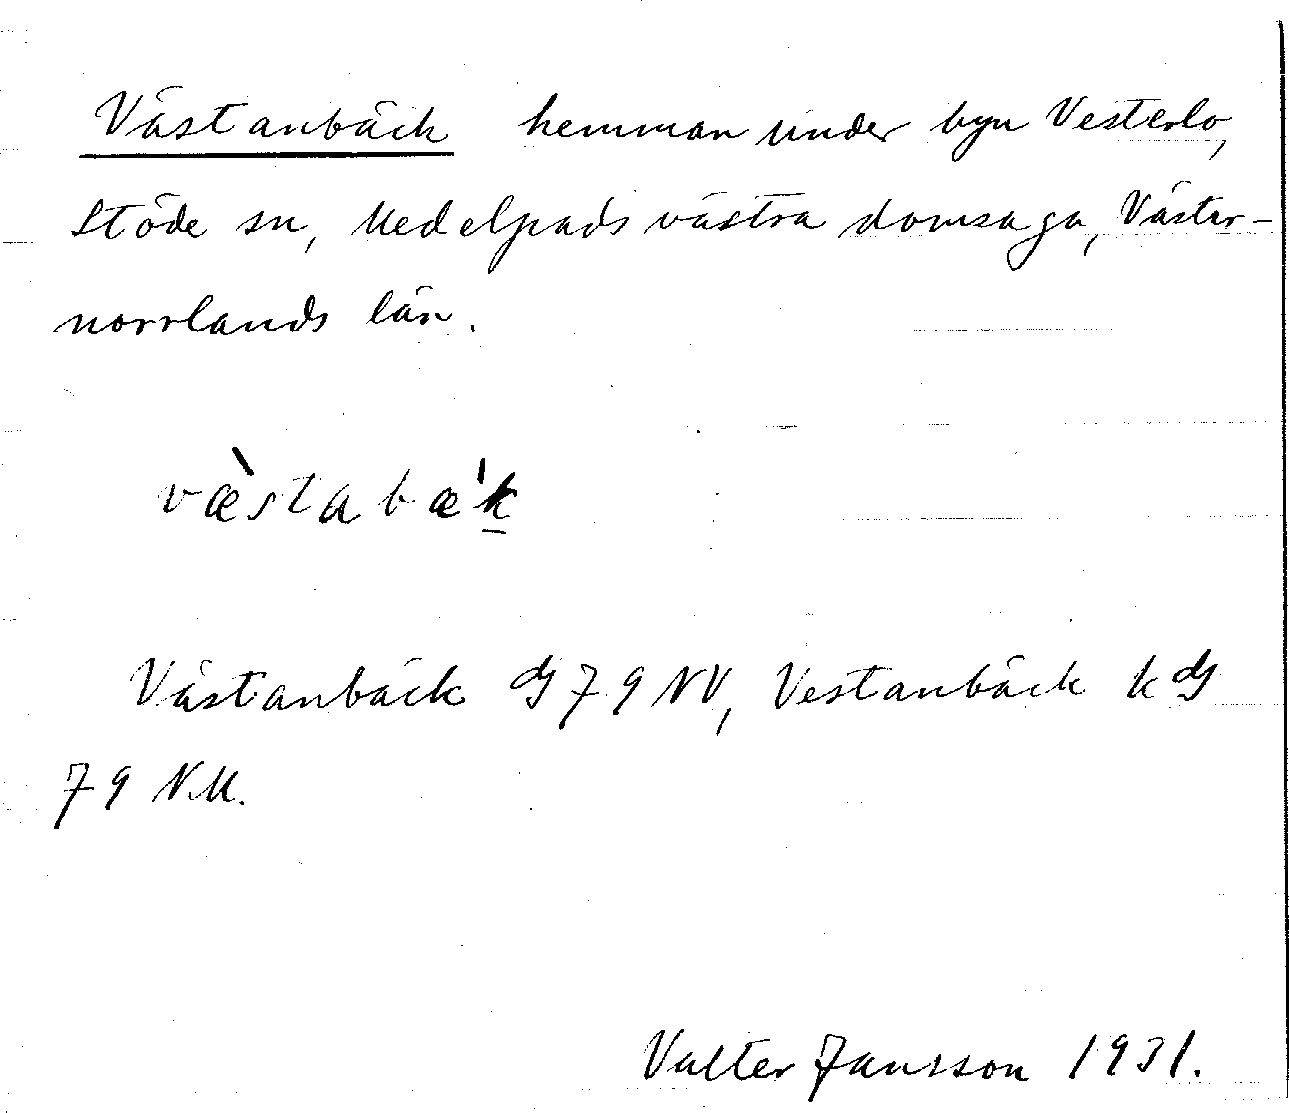 Västanbäck hemman under byn Vesterlo,
Stöde sn, Medelpads västra domsaga, Väster-
norrlands län.
væ̀stabæ'k̠
Västanbäck dg 79 NV, Vestanbäck k dg
79 N.M.
Valter Jansson 1931.